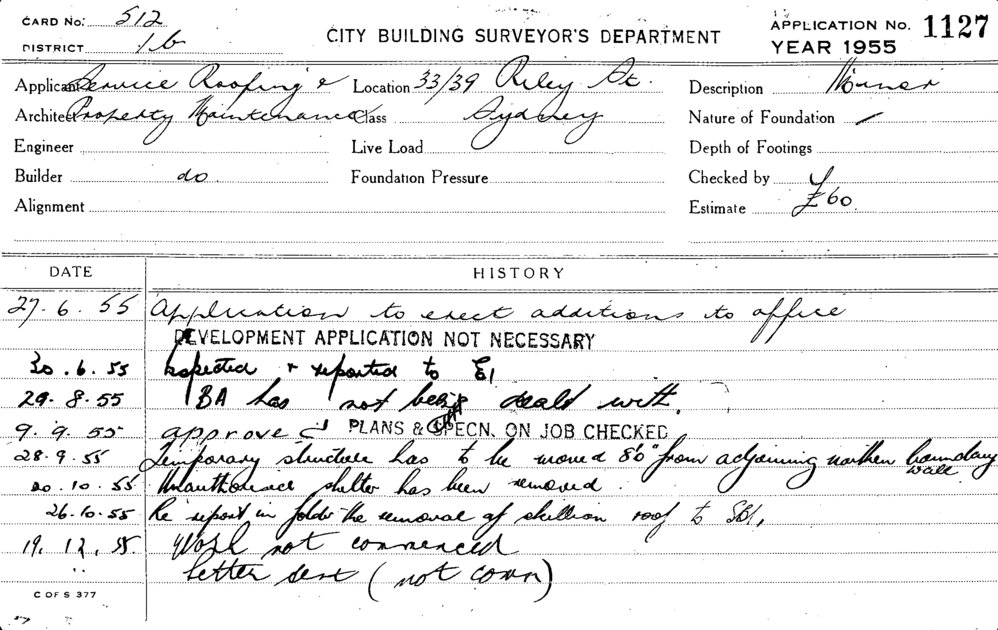 CARD No: 512
DISTRICT 1b
CITY BUILDING SURVEYOR'S DEPARTMENT
APPLICATION No. 1127
YEAR 1955
Applicant Service Roofing & Location 33/39 Riley St. Description Minor
Architect Property Maintenance Class Sydney Nature of Foundation
Engineer Live Load Depth of Footings
Builder do Foundation Pressure Checked by
Alignment Estimate £60
DATE HISTORY
27.6.55 Application to erect additions to office
DEVELOPMENT APPLICATION NOT NECESSARY
30.6.55 Inspected & reported to E1
29.8.55 BA has not been dealt with.
9.9.55 approved PLANS & SPECN. ON JOB CHECKED
28.9.55 Temporary structure has to be moved 8'6" from adjoining northern boundary wall
20.10.55 Unauthorised shelter has been removed.
26.10.55 Re report in folder the removal of skillion roof to SB1.
19.12.55 Work not commenced
" letter sent (not comm)
C OF S 377